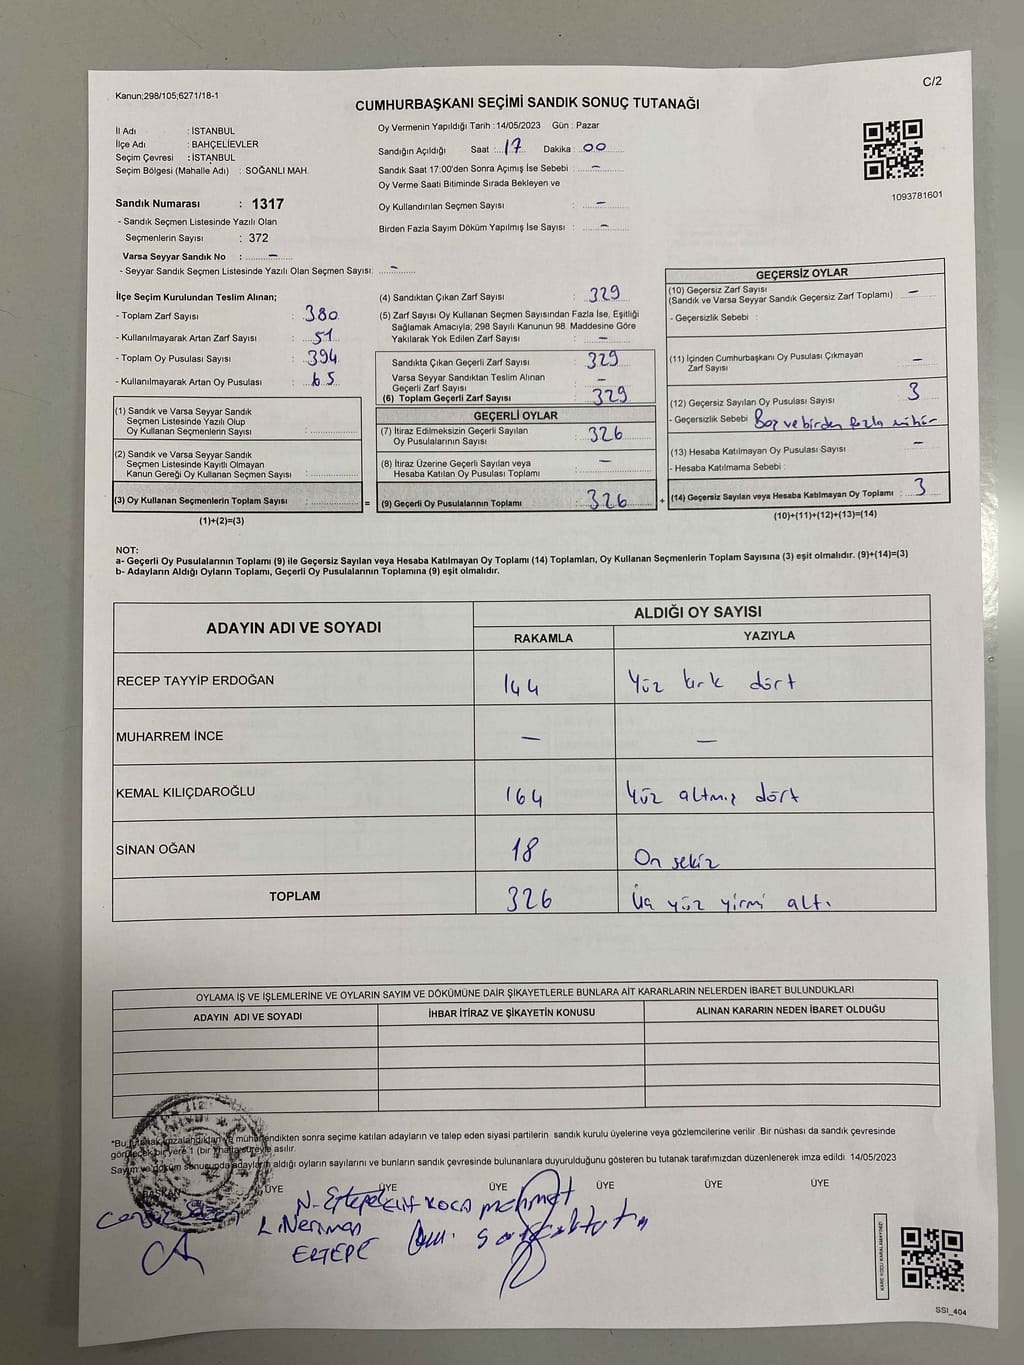 Kanun;298/105;6271/18-1
C/2
CUMHURBAŞKANI SEÇİMİ SANDIK SONUÇ TUTANAĞI
İl Adı : İSTANBUL
İlçe Adı : BAHÇELİEVLER
Seçim Çevresi : İSTANBUL
Seçim Bölgesi (Mahalle Adı) : SOĞANLI MAH.
Sandık Numarası : 1317
- Sandık Seçmen Listesinde Yazılı Olan
Seçmenlerin Sayısı : 372
Varsa Seyyar Sandık No : –
- Seyyar Sandık Seçmen Listesinde Yazılı Olan Seçmen Sayısı: –
Oy Vermenin Yapıldığı Tarih :14/05/2023 Gün : Pazar
Sandığın Açıldığı Saat : 17 Dakika : 00
Sandık Saat 17:00'den Sonra Açımış İse Sebebi : –
Oy Verme Saati Bitiminde Sırada Bekleyen ve
Oy Kullandırılan Seçmen Sayısı : –
Birden Fazla Sayım Döküm Yapılmış İse Sayısı : –
1093781601
İlçe Seçim Kurulundan Teslim Alınan;
- Toplam Zarf Sayısı : 380
- Kullanılmayarak Artan Zarf Sayısı : 51
- Toplam Oy Pusulası Sayısı : 394
- Kullanılmayarak Artan Oy Pusulası : 65
(1) Sandık ve Varsa Seyyar Sandık
Seçmen Listesinde Yazılı Olup
Oy Kullanan Seçmenlerin Sayısı :
(2) Sandık ve Varsa Seyyar Sandık
Seçmen Listesinde Kayıtlı Olmayan
Kanun Gereği Oy Kullanan Seçmen Sayısı :
(3) Oy Kullanan Seçmenlerin Toplam Sayısı :
(1)+(2)=(3)
(4) Sandıktan Çıkan Zarf Sayısı : 329
(5) Zarf Sayısı Oy Kullanan Seçmen Sayısından Fazla İse, Eşitliği
Sağlamak Amacıyla; 298 Sayılı Kanunun 98. Maddesine Göre
Yakılarak Yok Edilen Zarf Sayısı : –
Sandıkta Çıkan Geçerli Zarf Sayısı : 329
Varsa Seyyar Sandıktan Teslim Alınan
Geçerli Zarf Sayısı : –
(6) Toplam Geçerli Zarf Sayısı : 329
GEÇERLİ OYLAR
(7) İtiraz Edilmeksizin Geçerli Sayılan
Oy Pusulalarının Sayısı : 326
(8) İtiraz Üzerine Geçerli Sayılan veya
Hesaba Katılan Oy Pusulası Toplamı : –
= (9) Geçerli Oy Pusulalarının Toplamı : 326 +
GEÇERSİZ OYLAR
(10) Geçersiz Zarf Sayısı
(Sandık ve Varsa Seyyar Sandık Geçersiz Zarf Toplamı) : –
- Geçersizlik Sebebi :
(11) İçinden Cumhurbaşkanı Oy Pusulası Çıkmayan
Zarf Sayısı : –
(12) Geçersiz Sayılan Oy Pusulası Sayısı : 3
- Geçersizlik Sebebi : Boş ve birden fazla mühür
(13) Hesaba Katılmayan Oy Pusulası Sayısı : –
- Hesaba Katılmama Sebebi :
(14) Geçersiz Sayılan veya Hesaba Katılmayan Oy Toplamı : 3
(10)+(11)+(12)+(13)=(14)
NOT:
a- Geçerli Oy Pusulalarının Toplamı (9) ile Geçersiz Sayılan veya Hesaba Katılmayan Oy Toplamı (14) Toplamları, Oy Kullanan Seçmenlerin Toplam Sayısına (3) eşit olmalıdır. (9)+(14)=(3)
b- Adayların Aldığı Oyların Toplamı, Geçerli Oy Pusulalarının Toplamına (9) eşit olmalıdır.
ADAYIN ADI VE SOYADI
ALDIĞI OY SAYISI
RAKAMLA YAZIYLA
RECEP TAYYİP ERDOĞAN 144 Yüz kırk dört
MUHARREM İNCE – –
KEMAL KILIÇDAROĞLU 164 Yüz altmış dört
SİNAN OĞAN 18 On sekiz
TOPLAM 326 Üç yüz yirmi altı
OYLAMA İŞ VE İŞLEMLERİNE VE OYLARIN SAYIM VE DÖKÜMÜNE DAİR ŞİKAYETLERLE BUNLARA AİT KARARLARIN NELERDEN İBARET BULUNDUKLARI
ADAYIN ADI VE SOYADI İHBAR İTİRAZ VE ŞİKAYETİN KONUSU ALINAN KARARIN NEDEN İBARET OLDUĞU
*Bu tutanak imzalandıktan ve mühürlendikten sonra seçime katılan adayların ve talep eden siyasi partilerin sandık kurulu üyelerine veya gözlemcilerine verilir. Bir nüshası da sandık çevresinde
görülecek bir yere 1 (bir) hafta süreyle asılır.
Sayım ve döküm sonucunda adayların aldığı oyların sayılarını ve bunların sandık çevresinde bulunanlara duyurulduğunu gösteren bu tutanak tarafımızdan düzenlenerek imza edildi. 14/05/2023
BAŞKAN ÜYE ÜYE ÜYE ÜYE ÜYE ÜYE
N. Ertepe ELİF KOCA Mehmet
Neriman
ERTEPE
SSI_404